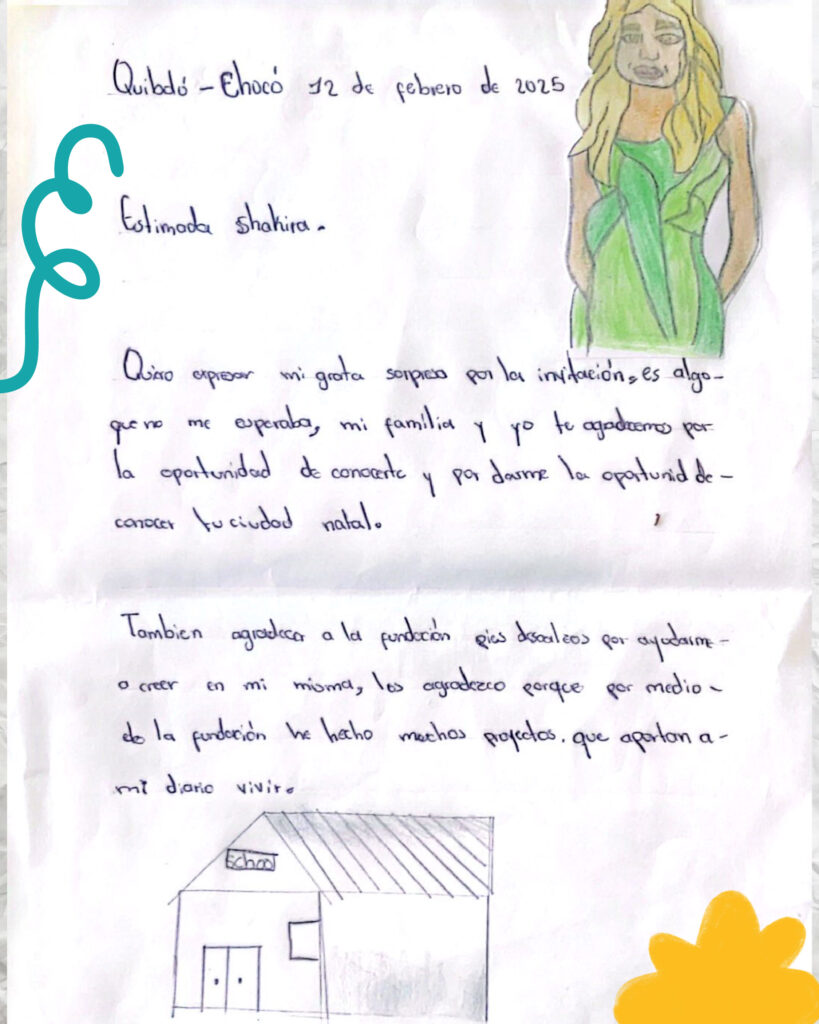 Quibdó - Chocó 12 de febrero de 2025
Estimada Shakira.
Quiero expresar mi grata sorpresa por la invitación, es algo-
que no me esperaba, mi familia y yo te agradecemos por
la oportunidad de conocerte y por darme la oportunid de-
conocer tu ciudad natal.
Tambien agradecer a la fundación pies descalzos por ayudarme-
a creer en mi misma, les agradezco porque por medio-
de la fundación he hecho muchos proyectos. que aportan a-
mi diario vivir.
School